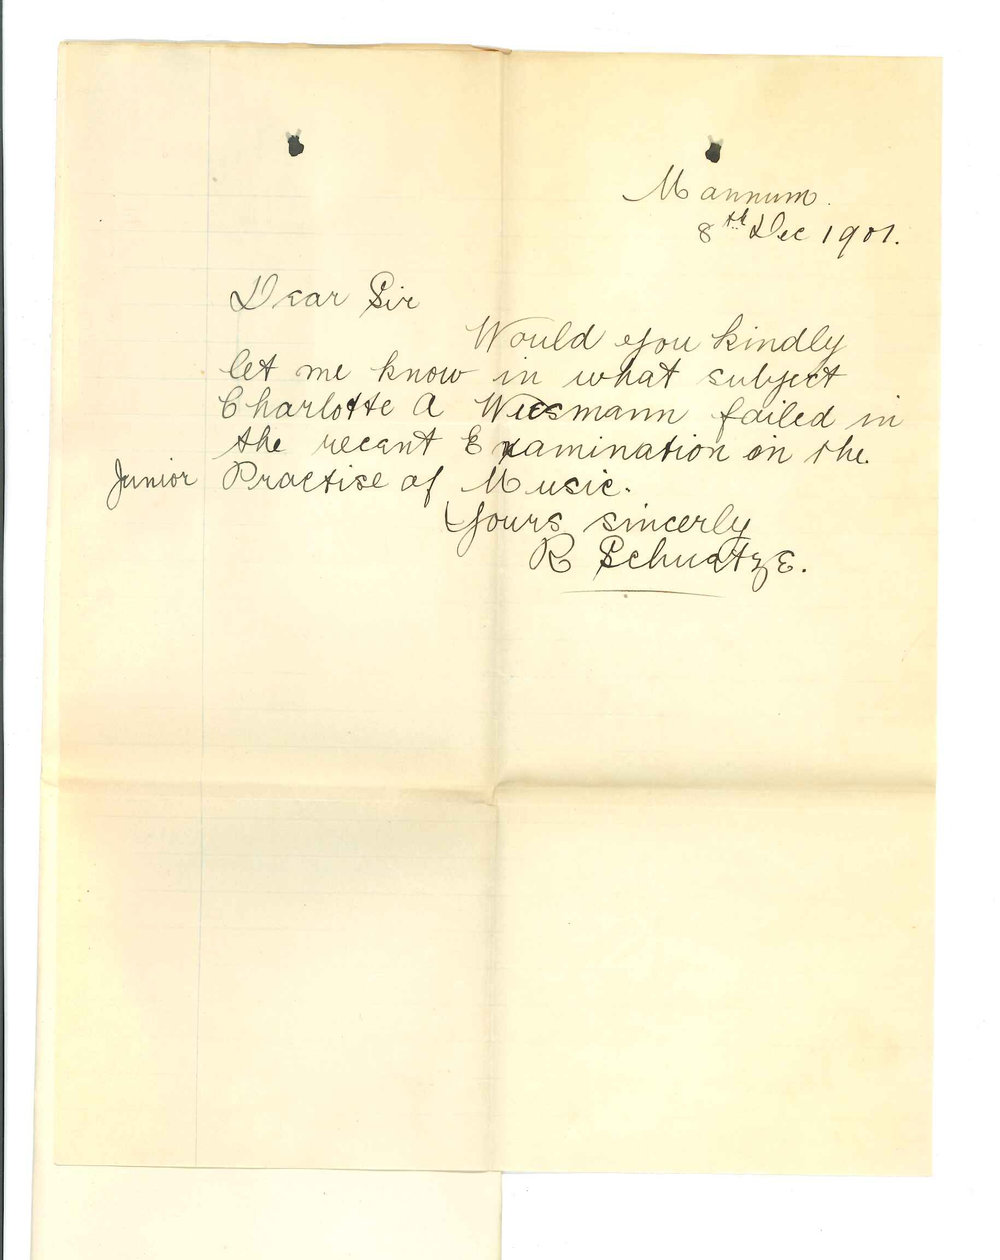 Mannum.
8th Dec 1901.
Dear Sir
Would you kindly
let me know in what subject
Charlotte A Wiesmann failed in
the recent Examination in the
Junior Practise of Music.
Yours sincerly
R Schuatze.